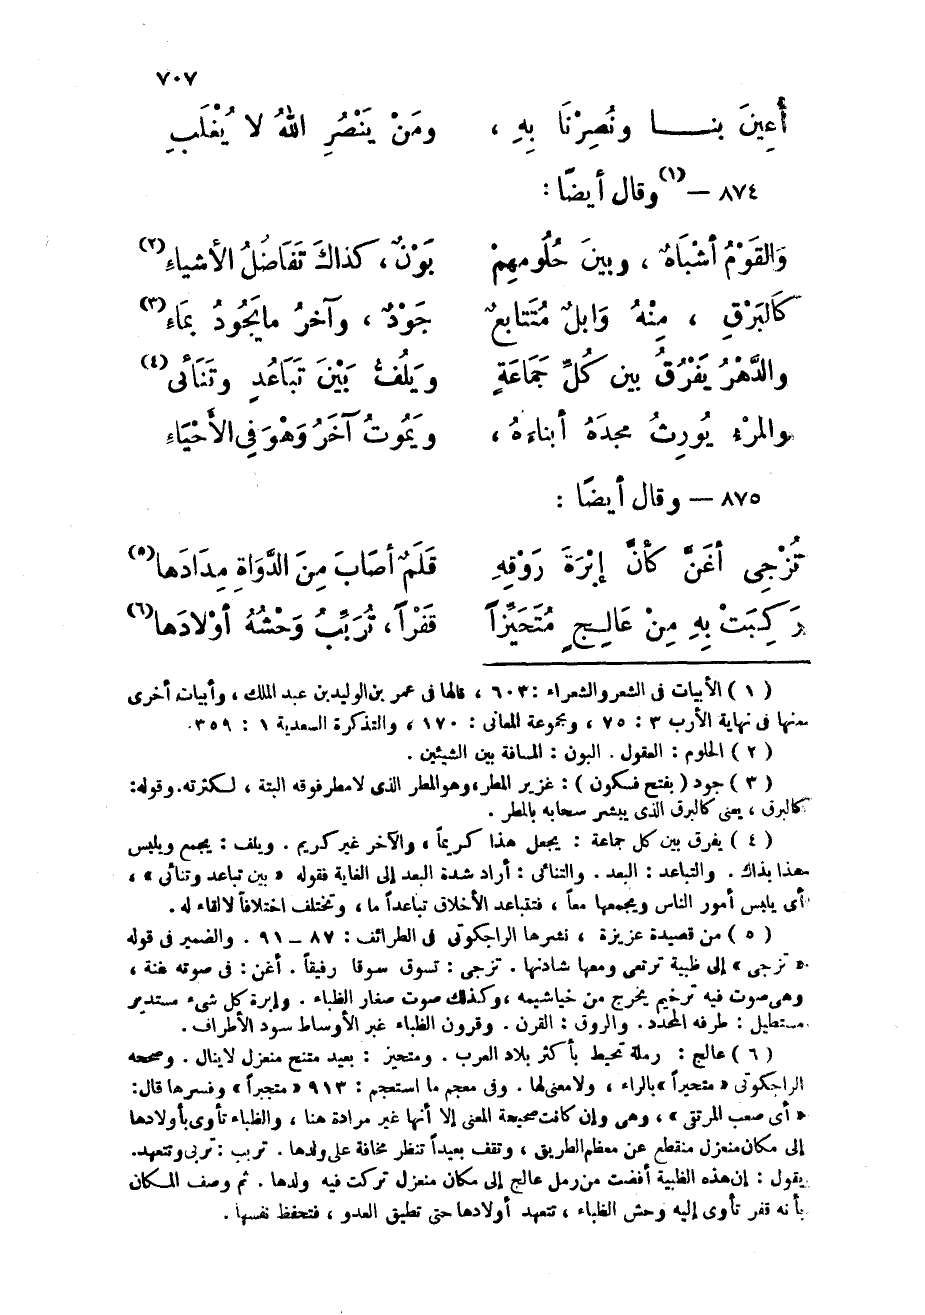 ٧٠٧
أُعِينَ بنـــا ونُصِرْنَا بِهِ ، ومَنْ يَنْصُرِ اللهُ لا يُغْلَبِ
٨٧٤ – (١) وقال أيضًا :
وَالقَوْمُ أَشْبَاهٌ ، وبينَ حُلُومِهِمْ بَوْنٌ ، كذاكَ تَفَاضُلُ الأشياءِ (٢)
كَالبَرْقِ ، مِنْهُ وَابِلٌ مُتَتابِعٌ جَوْدٌ ، وآخرُ ما يَجُودُ بمَاءِ (٣)
والدَّهْرُ يَفْرُقُ بين كُلِّ جَمَاعَةٍ ويَلُفُّ بَيْنَ تَبَاعُدٍ وتَنَائى (٤)
والمرْء يُورِثُ مجدَهُ أبناءهُ ، ويَمُوتُ آخَرُ وَهْوَ فى الأَحْيَاءِ
٨٧٥ – وقال أيضًا :
تُزْجِى أغَنَّ كأنَّ إبْرَةَ رَوْقِهِ قَلَمٌ أصَابَ مِنَ الدَّوَاةِ مِدَادَها (٥)
رَكِبَتْ بِهِ مِنْ عَالِجٍ مُتَحَيِّزاً قفْراً، تُرَبِّبُ وَحْشُهُ أوْلادَها (٦)
( ١ ) الأبيات فى الشعر والشعراء : ٦٠٣ ، قالها فى عمر بن الوليد بن عبد الملك ، وأبيات أخرى
منها فى نهاية الأرب ٣ : ٧٥ ، ومجموعة المعانى : ١٧٠ ، والتذكرة السعدية ١ : ٣٥٩.
( ٢ ) الحلوم : العقول . البون : المسافة بين الشيئين .
( ٣ ) جود ( بفتح فسكون ) : غزير المطر ، وهو المطر الذى لا مطر فوقه البتة ، لكثرته. وقوله:
كالبرق ، يعنى كالبرق الذى يبشر سحابه بالمطر .
( ٤ ) يفرق بين كل جماعة : يجعل هذا كريماً ، والآخر غير كريم . ويلف : يجمع ويلبس
هذا بذاك . والتباعد : البعد . والتنائى : أراد شدة البعد إلى الغاية فقوله « بين تباعد وتنائى » ،
أى يلبس أمور الناس ويجمعها معاً ، فتقباعد الأخلاق تباعداً ما ، وتختلف اختلافاً لا لقاء له .
( ٥ ) من قصيدة عزيزة ، نشرها الراجكوتى فى الطرائف : ٨٧ – ٩١ . والضمير فى قوله
« تزجى » إلى ظبية ترتعى ومعها شادنها . تزجى : تسوق سوقا رفيقاً . أغن : فى صوته غنة ،
وهى صوت فيه ترخيم يخرج من خياشيمه ، وكذلك صوت صغار الظباء . وإبرة كل شىء مستدير
مستطيل : طرفه المحدد. والروق : القرن . وقرون الظباء غبر الأوساط سود الأطراف .
( ٦ ) عالج : رملة تحيط بأكثر بلاد العرب . ومتحيز : بعيد متنح منعزل لاينال . وصححه
الراجكوتى « متحيراً » بالراء ، ولا معنى لها . وفى معجم ما استعجم : ٩١٣ « متجبراً » وفسرها قال:
« أى صعب المرتقى » ، وهى وإن كانت صحيحة المعنى إلا أنها غير مرادة هنا ، والظباء تأوى بأولادها
إلى مكان منعزل منقطع عن معظم الطريق ، وتقف بعيداً تنظر مخافة على ولدها . تربب : تربى وتتعهد.
يقول : إن هذه الظبية أفضت من رمل عالج إلى مكان منعزل تركت فيه ولدها . ثم وصف المكان
بأنه قفر تأوى إليه وحش الظباء ، تتعهد أولادها حتى تطيق العدو ، فتحفظ نفسها .